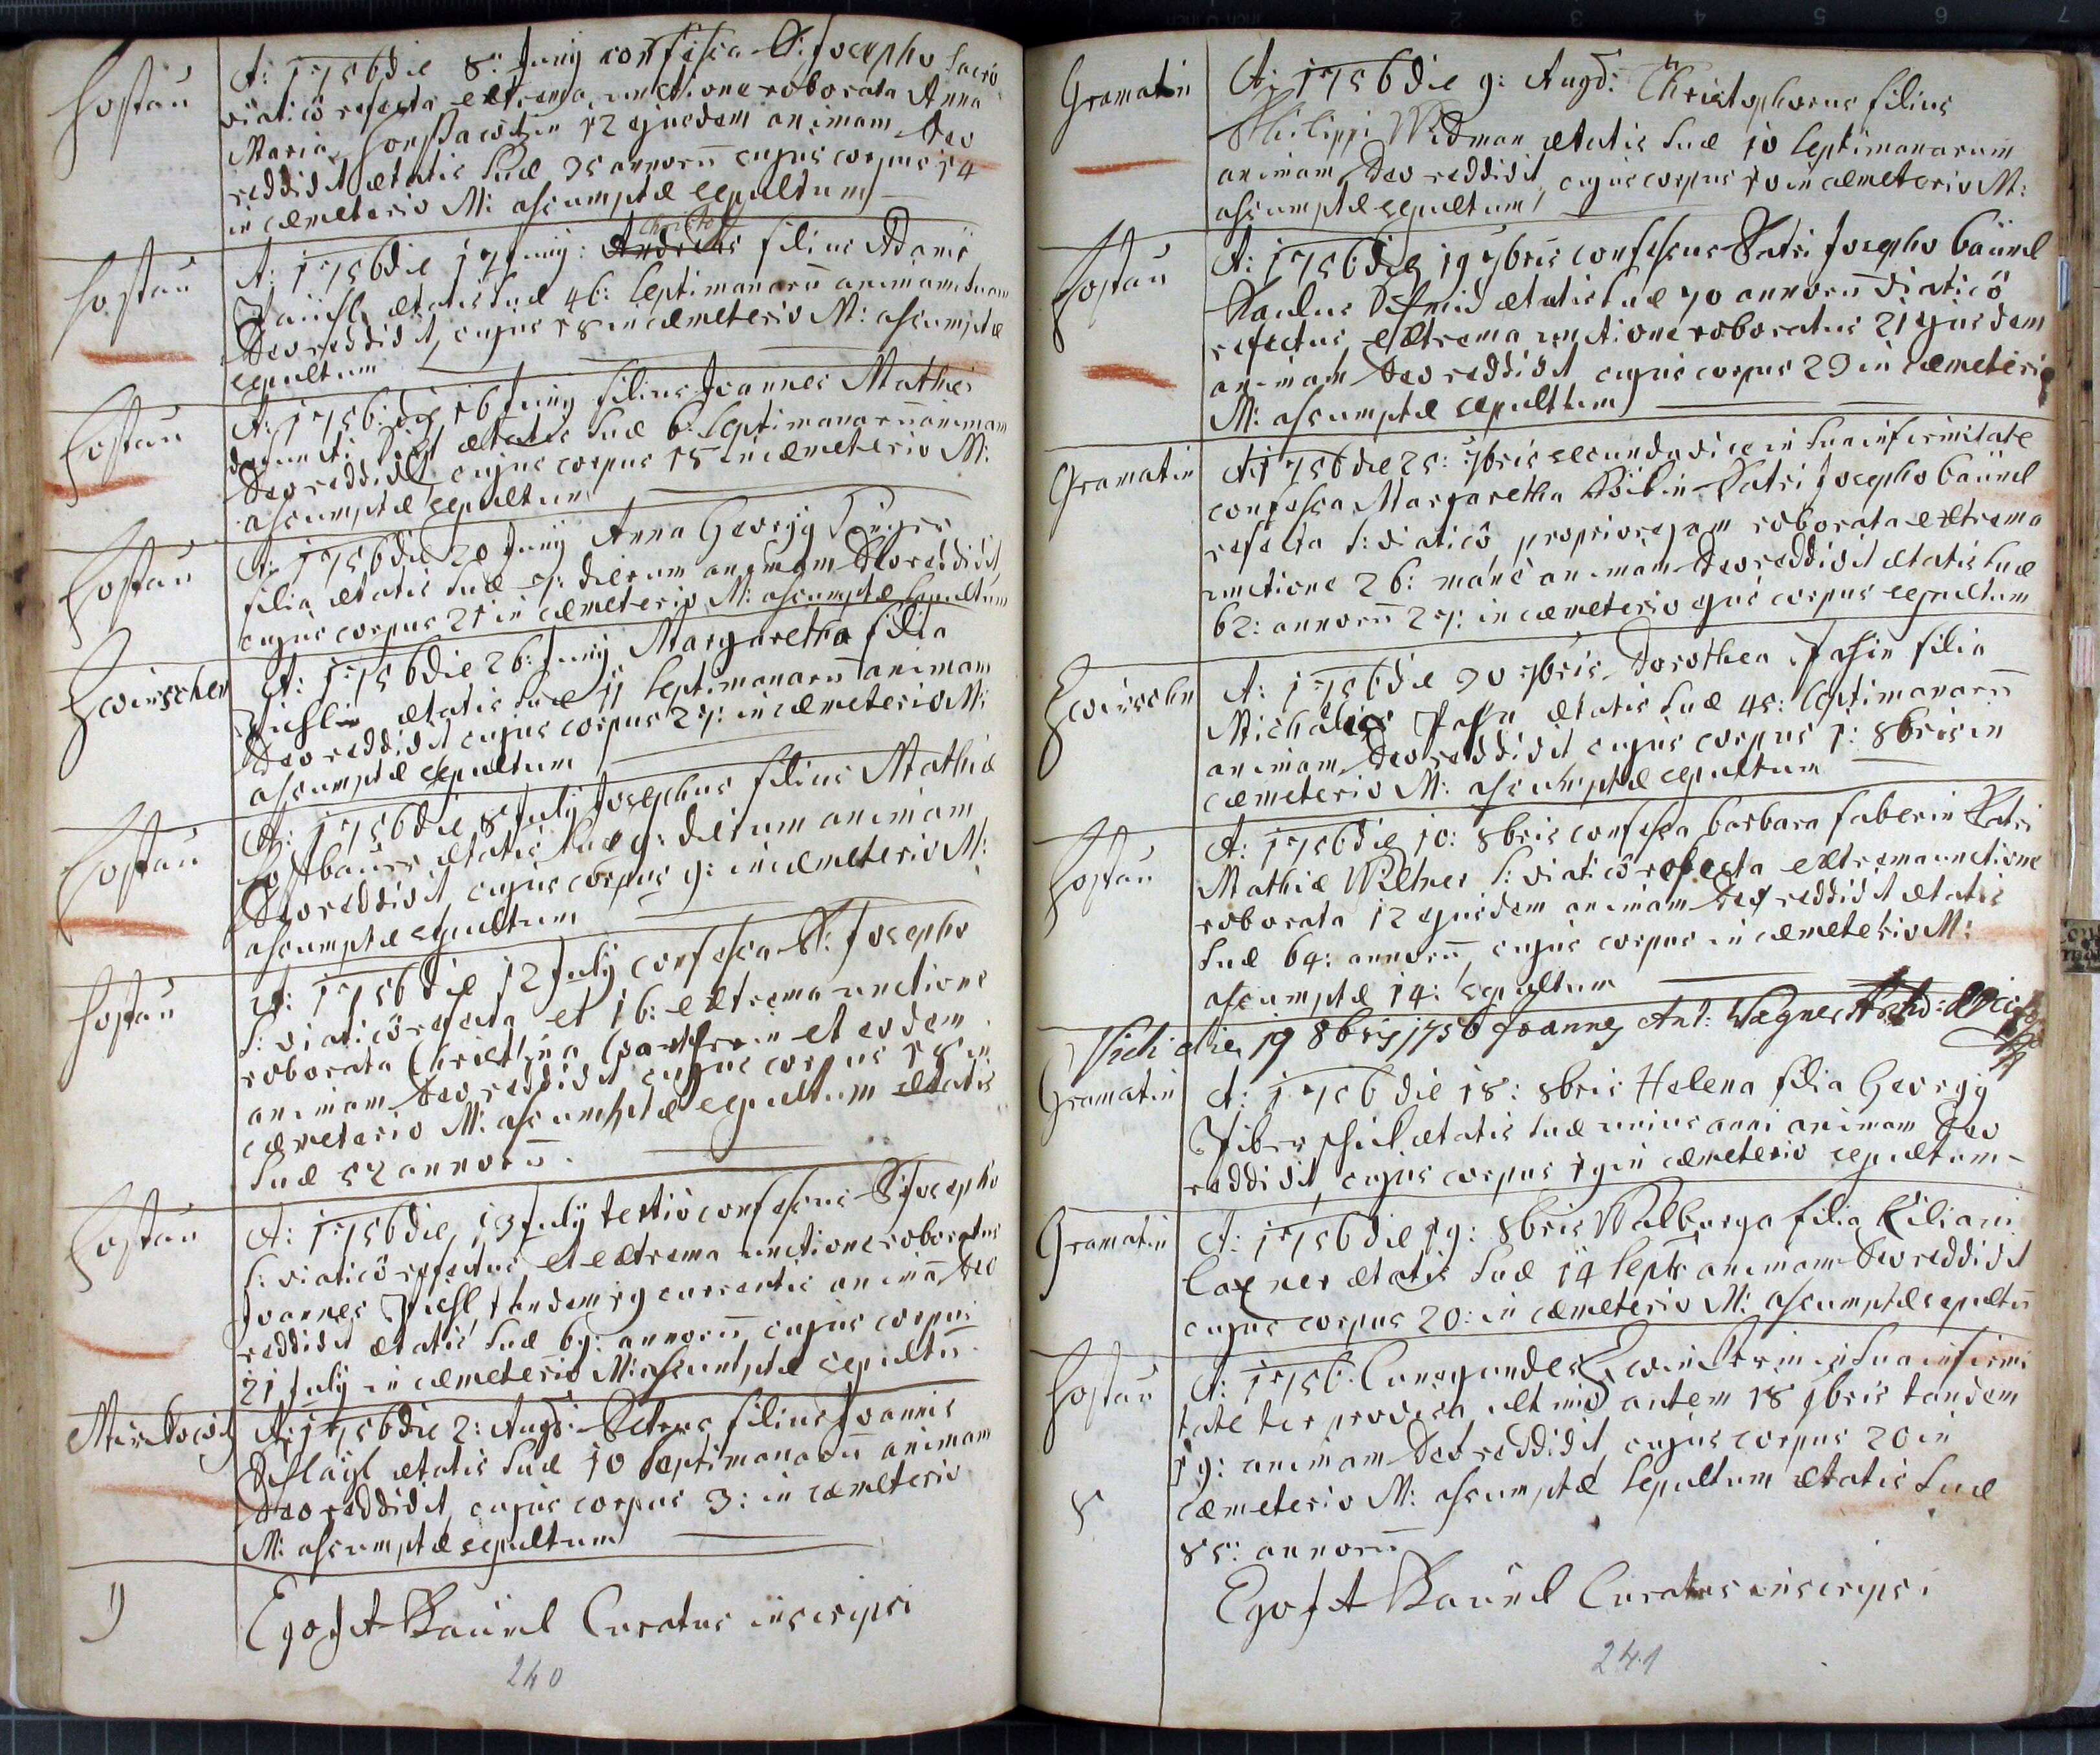 Hostau
A: 1756 die 8: Junÿ confessa P: Josepho sacro
viaticô refecta extrema unctione roborata Anna
Maria 12 ejusdem animam Deo
reddidit ætatis suæ 35 annorū cujus corpus 14
in cæmeterio M: assumptæ sepultum
Hostau
Christof
A: 1756 die 17 Junÿ: Andreas filius Adami
ætatis suæ 46: septimanarū animam suam
Deo reddidit, cujus 18 in cæmeterio M: assumptæ
sepultum
Hostau
A: 1756: die 16 Junÿ filius Joannes Mathei
defuncti ætatis suæ 6: septimanarū animam
Deo reddidit cujus corpus 18 in cæmeterio M:
assumptæ sepultum
Hostau
A: 1756 die 20 Junÿ Anna Georgÿ
filia ætatis suæ 7: dierum animam Deo reddidit
cujus corpus 21 in cæmeterio M: assumptæ sepultum
Zwirschen
A: 1756 die 26: Junÿ Margaretha filia
ætatis suæ 11 septimanarū animam
Deo reddidit cujus corpus 27: in cæmeterio M:
assumptæ sepultum
Hostau
A: 1756 die 8 Julÿ Josephus filius Mathiæ
ætatis suæ 9: dierum animam
Deo reddidit, cujus corpus 9: in cæmeterio M:
assumptæ sepultum
Hostau
A: 1756 die 12 Julÿ confessa P: Josepho
S: viaticô refecta et 16: extrema unctione
roborata Christina et eodem
animam Deo reddidit cujus corpus 18 in
cæmeterio M: assumptæ sepultum ætatis
suæ 52 annorū.
Hostau
A: 1756 die 13 Julÿ tertiô confessus P: Josepho
S: viaticô refectus et extrema unctione roboratus
Joannes Pichl, tandem 19 currentis animā Deo
reddidit ætatis suæ 69: annorū, cujus corpus
21 Julÿ in cæmeterio M: assumptæ sepultū
Mirkowitz
A: 1756 die 2: Augs: Petrus filius Joannis
Schlaigl ætatis suæ 10 septimanarū animam
Deo reddidit, cujus corpus 3: in cæmeterio
M: assumptæ sepultum
9
Ego J A Baüml Curatus inscripsi
240
Gramatin
A: 1756 die 9: Augs: Christophorus filius
Philippi Widman ætatis suæ 10 septimanarum
animam Deo reddidit, cujus corpus 10 in cæmeterio M:
assumptæ sepultum
Hostau
A: 1756: die 19 7bris confessus Patri Josepho baüml
Paulus Schmid ætatis suæ 70 annorū viaticô
refectus, extrema unctione roboratus 21 ejusdem
animam Deo reddidit cujus corpus 23 in cæmeterio
M: assumptæ sepultum
Gramatin
A: 1756 die 25: 7bris secunda vice in sua infirmitate
confessa Margaretha Patri Josepho baüml
refecta S: viaticô, roborata extrema
unctione 26: manè animam Deo reddidit ætatis suæ
62: annorū 27: in cæmeterio ejus corpus sepultum
Zwirschen
A: 1756 die 30 7bris Dorothea filia
Michälis ætatis suæ 45: septimanarū
animam Deo reddidit cujus corpus 1: 8bris in
cæmeterio M: assumptæ sepultum
Hostau
A: 1756 die 10: 8bris confessa barbara faberin Patri
Mathiæ Wiltner S: viaticô refecta extrema unctione
roborata 12 ejusdem animam Deo reddidit ætatis
suæ 64: annorū, cujus corpus in cæmeterio M:
assumptæ 14: sepultum
Vidi die 19 8bris 1756 Joannes Ant: Wagner
Gramatin
A: 1756 die 18: 8bris Helena filia Georgÿ
ætatis suæ unius anni animam Deo
reddidit, cujus corpus 19 in cæmeterio sepultum
Gramatin
A: 1756 die 19: 8bris Walburga filia Kiliani
ætatis suæ 14 sept: animam Deo reddidit
cujus corpus 20: in cæmeterio M: assumptæ sepultū
Hostau
A: 1756: Cunegundes in sua infirmi
tate ter provisa, ultimô autem 18 9bris tandem
19: animam Deo reddidit, cujus corpus 20 in
cæmeterio M: assumptæ sepultum ætatis suæ
85: annorū
8
Ego J A Baüml Curatus inscripsi
241